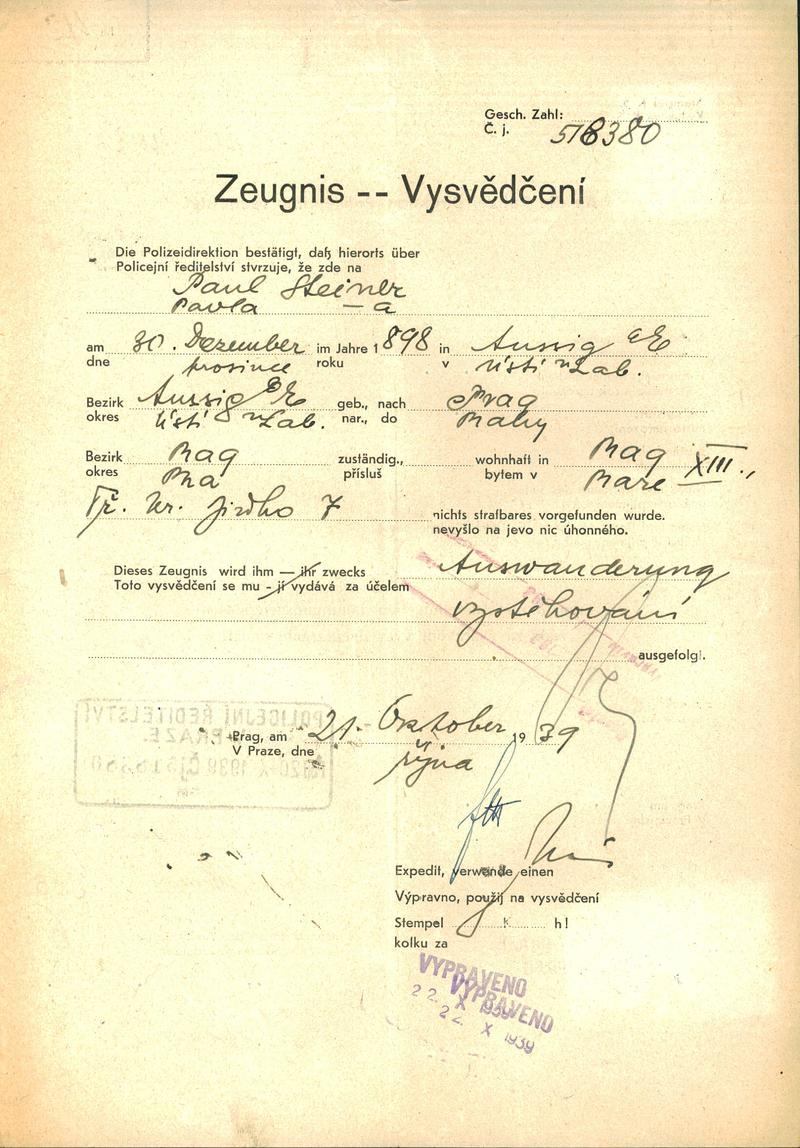 Gesch. Zahl:
Č. j. 518380
Zeugnis -- Vysvědčení
Die Polizeidirektion bestätigt, daß hierorts über
Policejní ředitelství stvrzuje, že zde na
Paul Steiner
Pavla — a
am 30. Dezember im Jahre 1898 in Aussig a/E
dne prosince roku v Ústí n/Lab.
Bezirk Aussig a/E geb., nach Prag
okres Ústí n/Lab. nar., do Prahy
Bezirk Prag zuständig., wohnhaft in Prag XIII.,
okres Pra přísluš bytem v Praze
Tř. Kr. Jiřího 7 nichts strafbares vorgefunden wurde.
nevyšlo na jevo nic úhonného.
Dieses Zeugnis wird ihm — ihr zwecks Auswanderung
Toto vysvědčení se mu - jí vydává za účelem
vystěhování
ausgefolgt.
POLICEJNÍ ŘEDITELSTVÍ
V PRAZE
Prag, am 21. Oktober 1939
V Praze, dne října
Expedit, verwende einen
Výpravno, použij na vysvědčení
Stempel k h!
kolku za
VYPRAVENO
22. X 1939
VYPRAVENO
22. X 1939